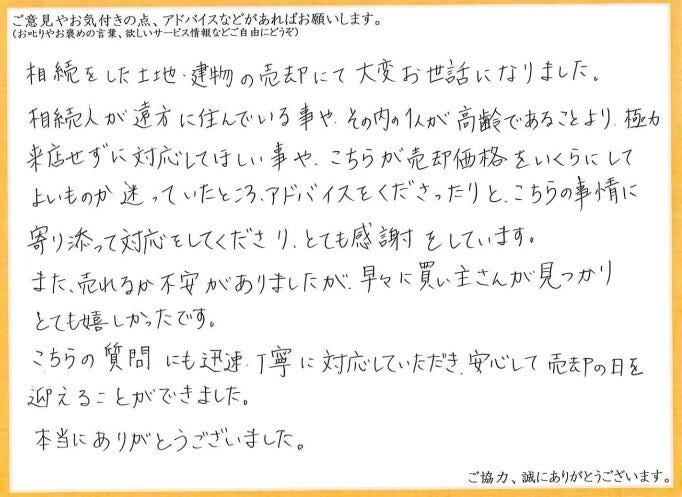 ご意見やお気付きの点、アドバイスなどがあればお願いします。
(お叱りやお褒めの言葉、欲しいサービス情報などご自由にどうぞ)
相続をした土地・建物の売却にて大変お世話になりました。
相続人が遠方に住んでいる事や、その内の1人が高齢であることより、極力
来店せずに対応してほしい事や、こちらが売却価格をいくらにして
よいものか迷っていたところ、アドバイスをくださったりと、こちらの事情に
寄り添って対応をしてくださり、とても感謝をしています。
また、売れるか不安がありましたが、早々に買い主さんが見つかり
とても嬉しかったです。
こちらの質問にも迅速、丁寧に対応していただき、安心して売却の日を
迎えることができました。
本当にありがとうございました。
ご協力、誠にありがとうございます。